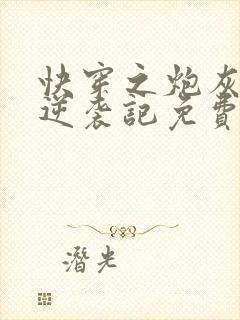 快穿之炮灰
逆袭記免費
潛光